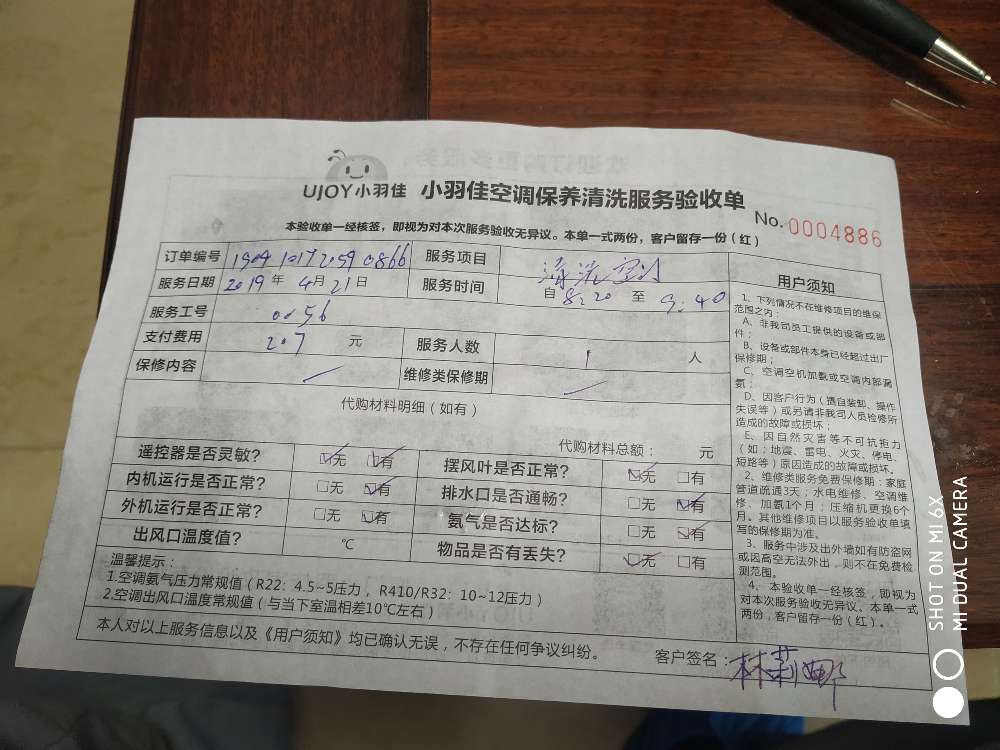 UJOY小羽佳 小羽佳空调保养清洗服务验收单
No. 0004886
本验收单一经核签，即视为对本次服务验收无异议。本单一式两份，客户留存一份（红）
订单编号 1904 1017 2059 0866 服务项目 清洗空调
服务日期 2019年4月21日 服务时间 自8:20 至 9:40
服务工号 0156
支付费用 207 元 服务人数 1 人
保修内容 维修类保修期
代购材料明细（如有）
代购材料总额： 元
遥控器是否灵敏? ☑无 ☑有 摆风叶是否正常? ☑无 □有
内机运行是否正常? □无 ☑有 排水口是否通畅? □无 ☑有
外机运行是否正常? □无 ☑有 氨气是否达标? □无 ☑有
出风口温度值? ℃ 物品是否有丢失? ☑无 □有
温馨提示：
1.空调氨气压力常规值（R22: 4.5~5压力，R410/R32: 10~12压力）
2.空调出风口温度常规值（与当下室温相差10℃左右）
本人对以上服务信息以及《用户须知》均已确认无误，不存在任何争议纠纷。
客户签名：林莉娜
用户须知
1、下列情况不在维修项目的维保
范围之内：
A、非我司员工提供的设备或部
件；
B、设备或部件本身已经超过出厂
保修期；
C、空调空机加氨或空调内部漏
氨；
D、因客户行为（擅自装卸、操作
失误等）或另请非我司人员检修所
造成的故障或损坏；
E、因自然灾害等不可抗拒力
（如：地震、雷电、火灾、停电、
短路等）原因造成的故障或损坏。
2、维修类服务免费保修期：家庭
管道疏通3天；水电维修、空调维
修、加氨1个月；压缩机更换6个
月。其他维修项目以服务验收单填
写的保修期为准。
3、服务中涉及出外墙如有防盗网
或因高空无法外出，则不在免费检
测范围。
4、本验收单一经核签，即视为
对本次服务验收无异议。本单一式
两份，客户留存一份（红）。
SHOT ON MI 6X
MI DUAL CAMERA